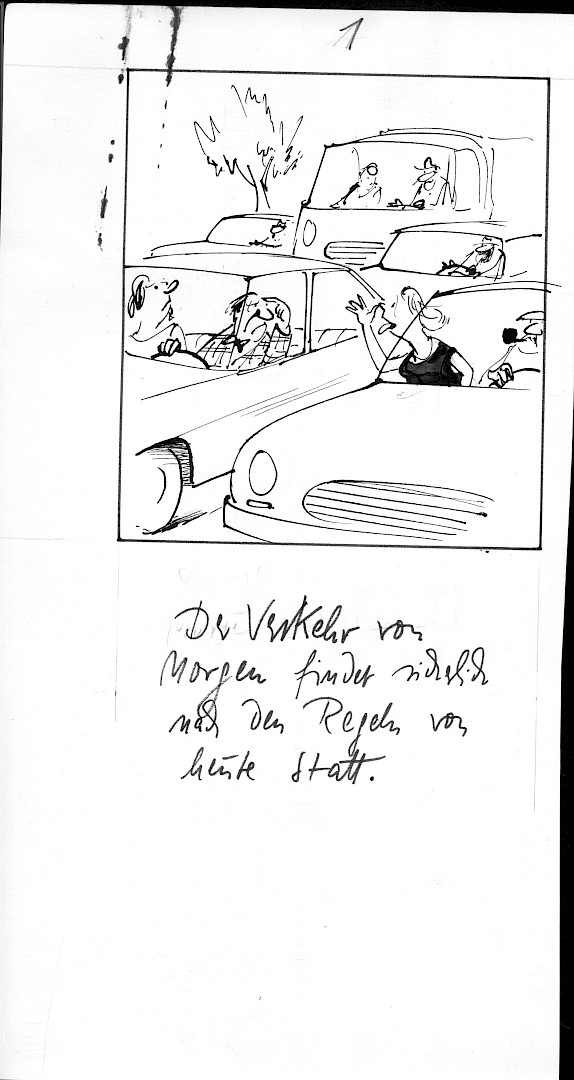 1
Der Verkehr von
Morgen findet sicherlich
nach den Regeln von
heute statt.